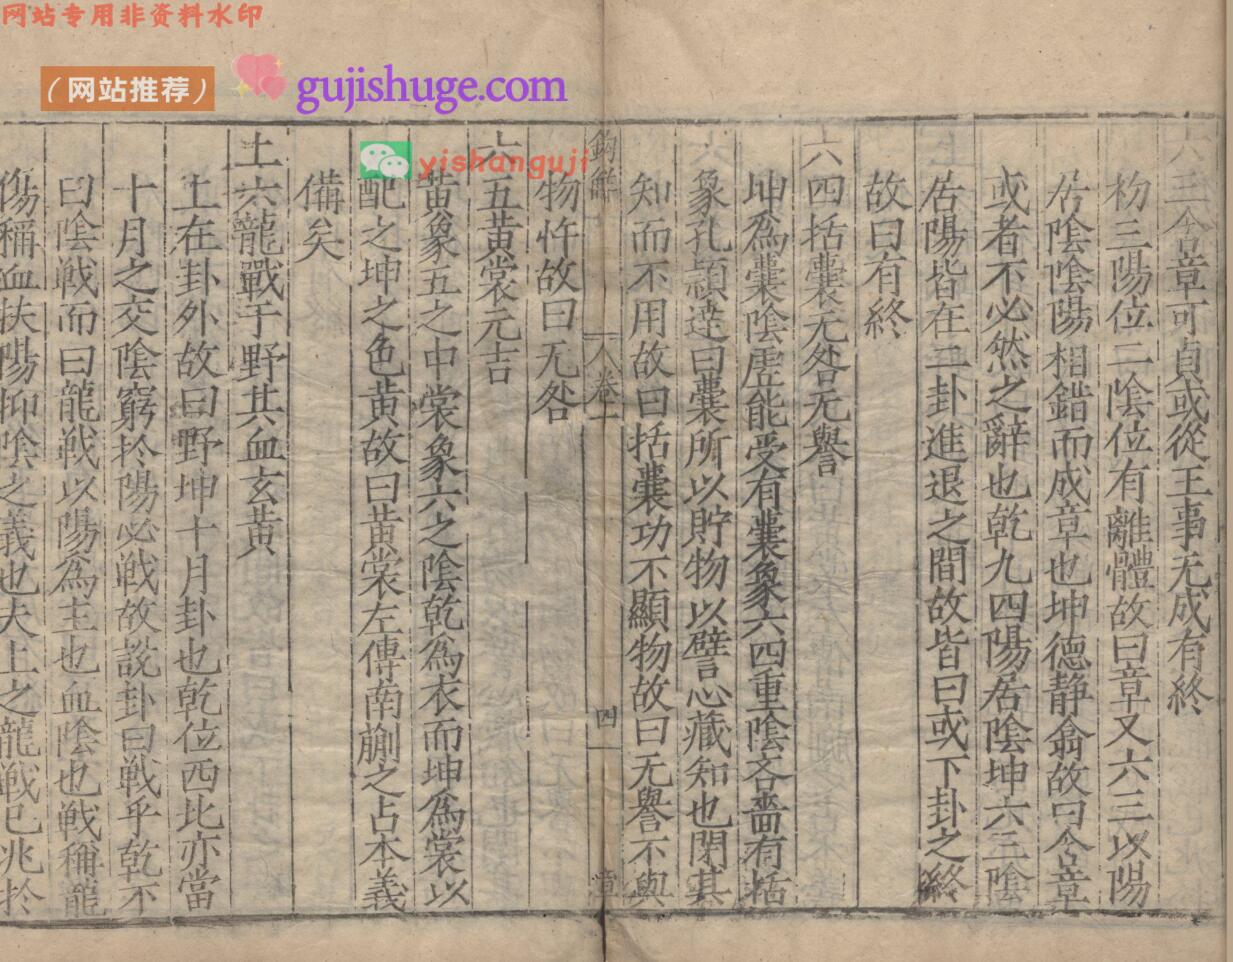 网站专用非资料水印
(网站推荐)
gujishuge.com
yishanguji
六三含章可貞或從王事无成有終
杒三陽位二陰位有離體故曰章又六三以陽
居陰陰陽相錯而成章也坤德静翕故曰含章
或者不必然之辭也乾九四陽居陰坤六三陰
居陽皆在二卦進退之間故皆曰或下卦之終
故曰有終
六四括囊无咎无譽
坤爲囊陰虚能受有囊象六四重陰吝嗇有括
象孔頴逹曰囊所以貯物以譬心藏知也閉其
知而不用故曰括囊功不顯物故曰无譽不與
卷一
四
物忤故曰无咎
六五黄裳元吉
黄象五之中裳象六之陰乾爲衣而坤爲裳以
配之坤之色黄故曰黄裳左傳南蒯之占本義
備矣
上六龍戰于野其血玄黄
上在卦外故曰野坤十月卦也乾位西北亦當
十月之交陰窮於陽必戦故說卦曰戦乎乾不
曰陰戦而曰龍戦以陽爲主也血陰也戦稱龍
傷稱血扶陽抑陰之義也夫上之龍戦已兆於